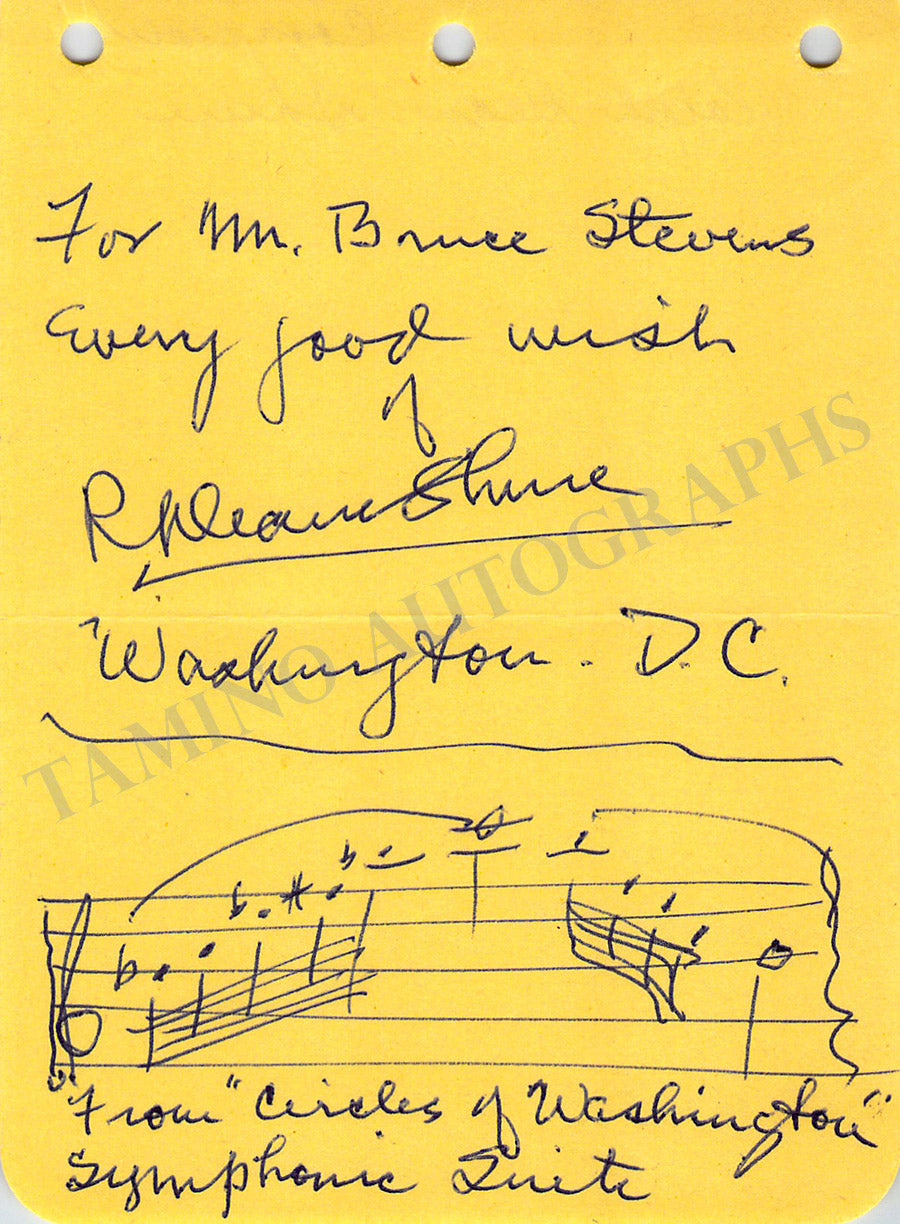 For Mr. Bruce Stevens
Every good wish
of
R Deane Shure
Washington. D.C.
TAMINO AUTOGRAPHS
"From "Circles of Washington"
Symphonic Suite